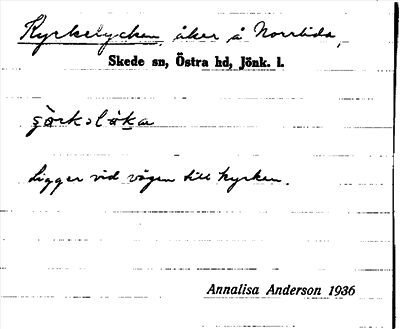 Kyrkelycken, åker å Norrlida,
Skede sn, Östra hd, Jönk. l.
Ligger vid vägen till kyrkan.
Annalisa Anderson 1936